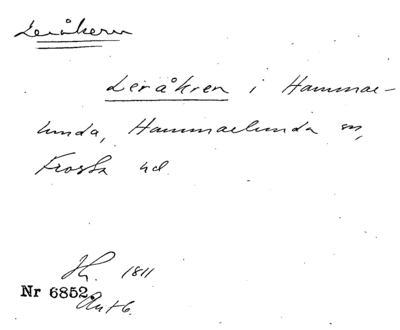 Leråkern
Leråkren i Hammar-
lunda, Hammarlunda sn,
Frosta hd
H. 1811
Nr 6852.